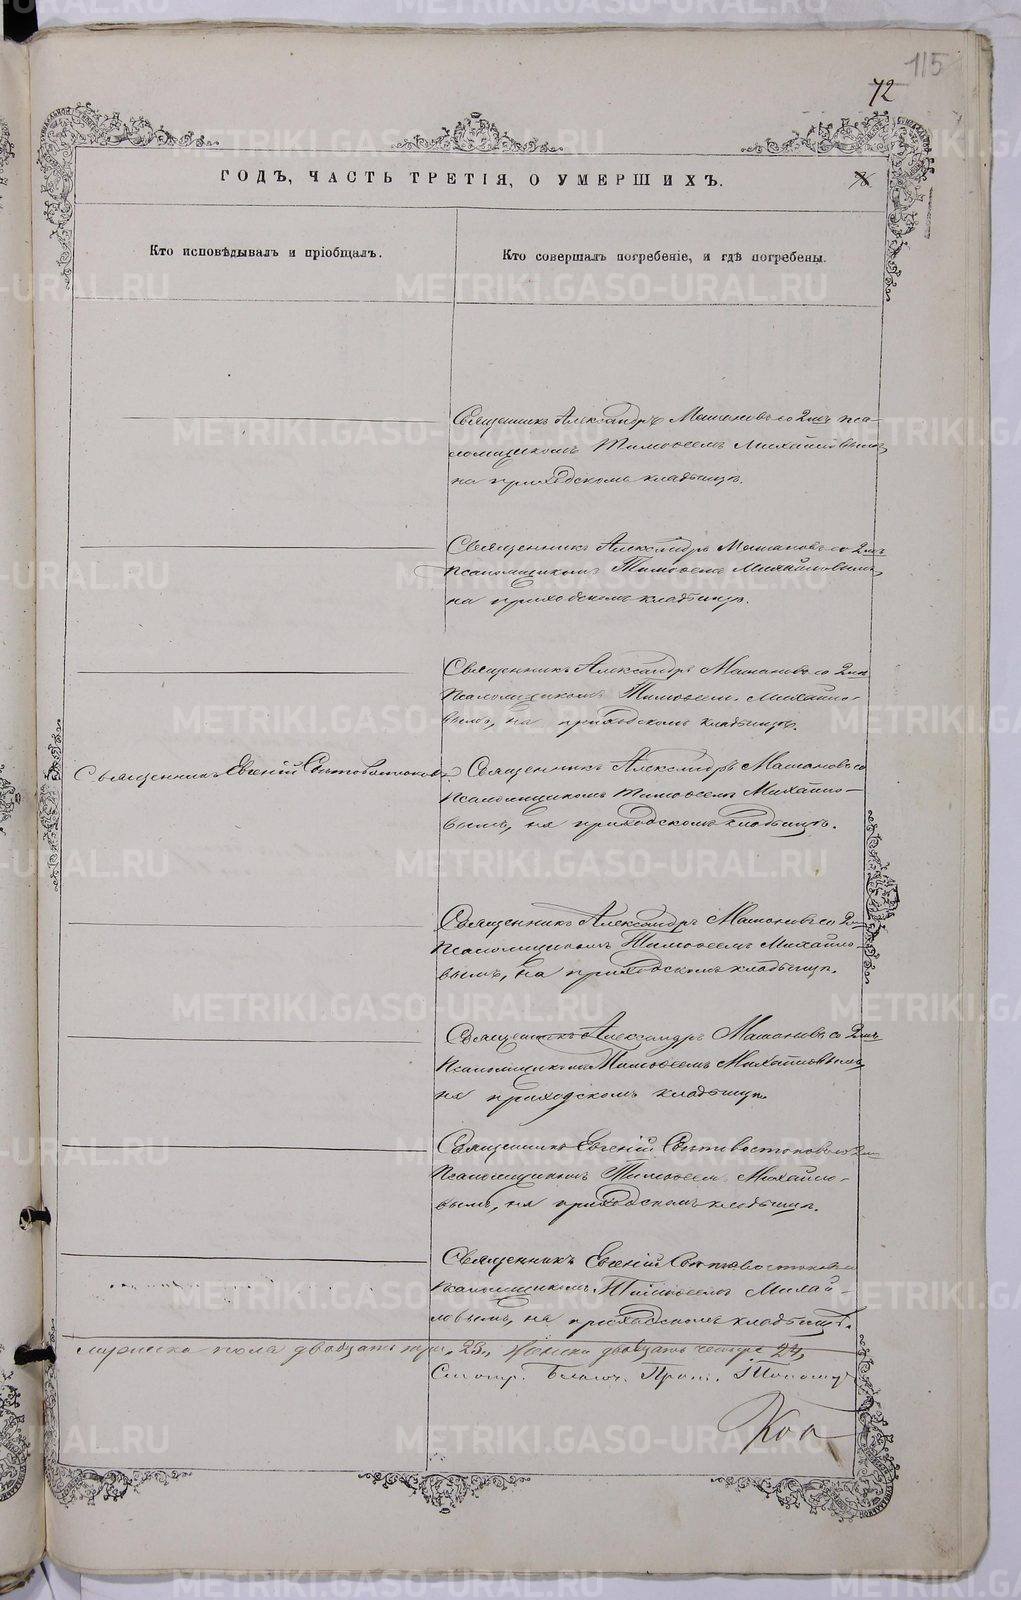 115
72
ГОДЪ, ЧАСТЬ ТРЕТІЯ, О УМЕРШИХЪ.
Кто исповѣдывалъ и пріобщалъ.
Кто совершалъ погребеніе, и гдѣ погребены.
Священникъ Александръ Машановъ со 2мъ пса-
ломщикомъ Тимоѳеемъ Михайловымъ,
на приходскомъ кладбищѣ.
Священникъ Александръ Машановъ со 2мъ
псаломщикомъ Тимоѳеемъ Михайловымъ,
на приходскомъ кладбищѣ.
Священникъ Александръ Машановъ со 2мъ
псаломщикомъ Тимоѳеемъ Михайло-
вымъ, на приходскомъ кладбищѣ.
Священникъ Евгеній
Священникъ Александръ Машановъ со
псаломщикомъ Тимоѳеемъ Михайло-
вымъ, на приходскомъ кладбищѣ.
Священникъ Александръ Машановъ со 2мъ
псаломщикомъ Тимоѳеемъ Михайло-
вымъ, на приходскомъ кладбищѣ.
Священникъ Александръ Машановъ со 2мъ
псаломщикомъ Тимоѳеемъ Михайловымъ,
на приходскомъ кладбищѣ.
Священникъ Евгеній со 2мъ
псаломщикомъ Тимоѳеемъ Михайло-
вымъ, на приходскомъ кладбищѣ.
Священникъ Евгеній
псаломщикомъ Тимоѳеемъ Михай-
ловымъ, на приходскомъ кладбищѣ.
мужска пола двадцать три, 23, женска двадцать четыре 24,
METRIKI.GASO-URAL.RU